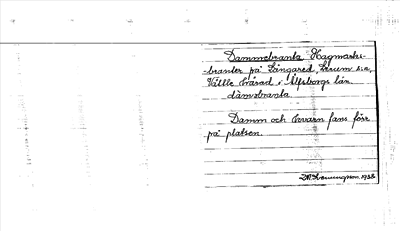 Dammebranta Hagmarks-
branter på Långared, Lerum s:n,
Vättle härad i Älfsborgs län.
dämsbranta
Damm och kvarn fans förr
på platsen.
1938